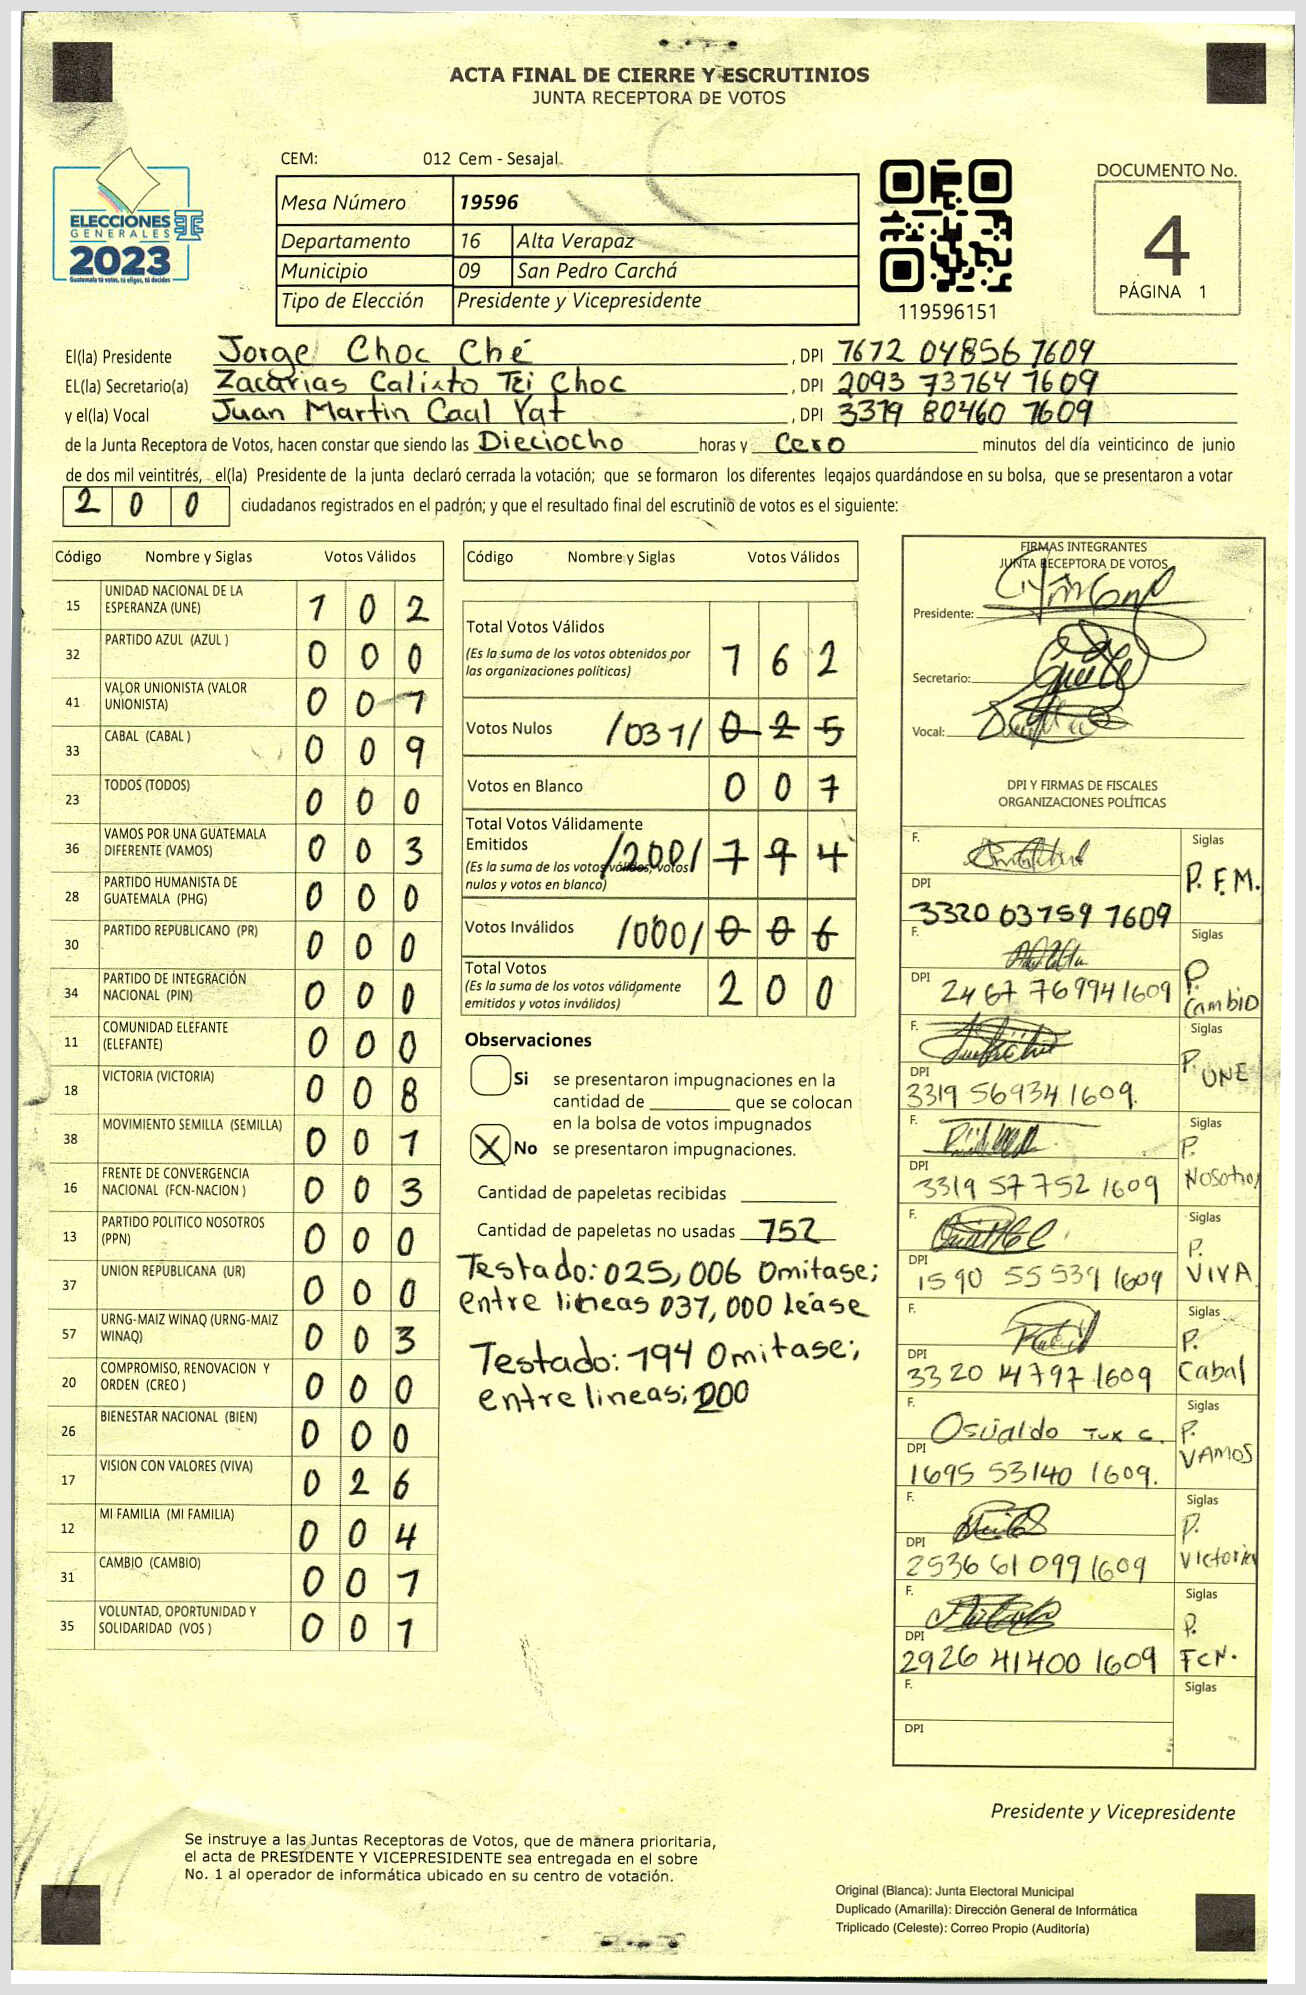 ACTA FINAL DE CIERRE Y ESCRUTINIOS
JUNTA RECEPTORA DE VOTOS
CEM: 012 Cem - Sesajal
ELECCIONES
GENERALES
2023
Guatemala tú votas, tú eliges, tú decides
Mesa Número 19596
Departamento 16 Alta Verapaz
Municipio 09 San Pedro Carchá
Tipo de Elección Presidente y Vicepresidente
119596151
DOCUMENTO No.
4
PÁGINA 1
El(la) Presidente Jorge Choc Ché , DPI 1612 04856 1609
EL(la) Secretario(a) Zacarias Calixto Tzi Choc , DPI 2093 73764 1609
y el(la) Vocal Juan Martin Caal Yat , DPI 3319 80460 1609
de la Junta Receptora de Votos, hacen constar que siendo las Dieciocho horas y Cero minutos del día veinticinco de junio
de dos mil veintitrés, el(la) Presidente de la junta declaró cerrada la votación; que se formaron los diferentes legajos guardándose en su bolsa, que se presentaron a votar
2 0 0 ciudadanos registrados en el padrón; y que el resultado final del escrutinio de votos es el siguiente:
Código Nombre y Siglas Votos Válidos
15 UNIDAD NACIONAL DE LA ESPERANZA (UNE) 1 0 2
32 PARTIDO AZUL (AZUL ) 0 0 0
41 VALOR UNIONISTA (VALOR UNIONISTA) 0 0 1
33 CABAL (CABAL ) 0 0 9
23 TODOS (TODOS) 0 0 0
36 VAMOS POR UNA GUATEMALA DIFERENTE (VAMOS) 0 0 3
28 PARTIDO HUMANISTA DE GUATEMALA (PHG) 0 0 0
30 PARTIDO REPUBLICANO (PR) 0 0 0
34 PARTIDO DE INTEGRACIÓN NACIONAL (PIN) 0 0 0
11 COMUNIDAD ELEFANTE (ELEFANTE) 0 0 0
18 VICTORIA (VICTORIA) 0 0 8
38 MOVIMIENTO SEMILLA (SEMILLA) 0 0 1
16 FRENTE DE CONVERGENCIA NACIONAL (FCN-NACION ) 0 0 3
13 PARTIDO POLITICO NOSOTROS (PPN) 0 0 0
37 UNION REPUBLICANA (UR) 0 0 0
57 URNG-MAIZ WINAQ (URNG-MAIZ WINAQ) 0 0 3
20 COMPROMISO, RENOVACION Y ORDEN (CREO ) 0 0 0
26 BIENESTAR NACIONAL (BIEN) 0 0 0
17 VISION CON VALORES (VIVA) 0 2 6
12 MI FAMILIA (MI FAMILIA) 0 0 4
31 CAMBIO (CAMBIO) 0 0 1
35 VOLUNTAD, OPORTUNIDAD Y SOLIDARIDAD (VOS ) 0 0 1
Código Nombre y Siglas Votos Válidos
Total Votos Válidos
(Es la suma de los votos obtenidos por
las organizaciones políticas) 1 6 2
Votos Nulos /031/ 0 2 5
Votos en Blanco 0 0 7
Total Votos Válidamente
Emitidos /200/ 1 9 4
(Es la suma de los votos válidos, votos
nulos y votos en blanco)
Votos Inválidos /000/ 0 0 6
Total Votos
(Es la suma de los votos válidamente
emitidos y votos inválidos) 2 0 0
Observaciones
Si se presentaron impugnaciones en la
cantidad de ________ que se colocan
en la bolsa de votos impugnados
X No se presentaron impugnaciones.
Cantidad de papeletas recibidas ________
Cantidad de papeletas no usadas 152
Testado: 025, 006 Omitase;
entre lineas 031, 000 Léase
Testado: 194 Omitase;
entre lineas; 200
FIRMAS INTEGRANTES
JUNTA RECEPTORA DE VOTOS
Presidente:
Secretario:
Vocal:
DPI Y FIRMAS DE FISCALES
ORGANIZACIONES POLÍTICAS
F. Siglas
P. F.M.
DPI 3320 63759 1609
F. Siglas
P. Cambio
DPI 2467 76994 1609
F. Siglas
P. UNE
DPI 3319 56934 1609.
F. Siglas
P. Nosotros
DPI 3319 57752 1609
F. Siglas
P. VIVA
DPI 1590 55539 1609
F. Siglas
P. Cabal
DPI 3320 14797 1609
F. Osvaldo Tux C. Siglas
P. VAMOS
DPI 1695 53140 1609.
F. Siglas
P. Victoria
DPI 2536 61099 1609
F. Siglas
P. FCN.
DPI 2926 41400 1609
F. Siglas
DPI
Presidente y Vicepresidente
Se instruye a las Juntas Receptoras de Votos, que de manera prioritaria,
el acta de PRESIDENTE Y VICEPRESIDENTE sea entregada en el sobre
No. 1 al operador de informática ubicado en su centro de votación.
Original (Blanca): Junta Electoral Municipal
Duplicado (Amarilla): Dirección General de Informática
Triplicado (Celeste): Correo Propio (Auditoría)